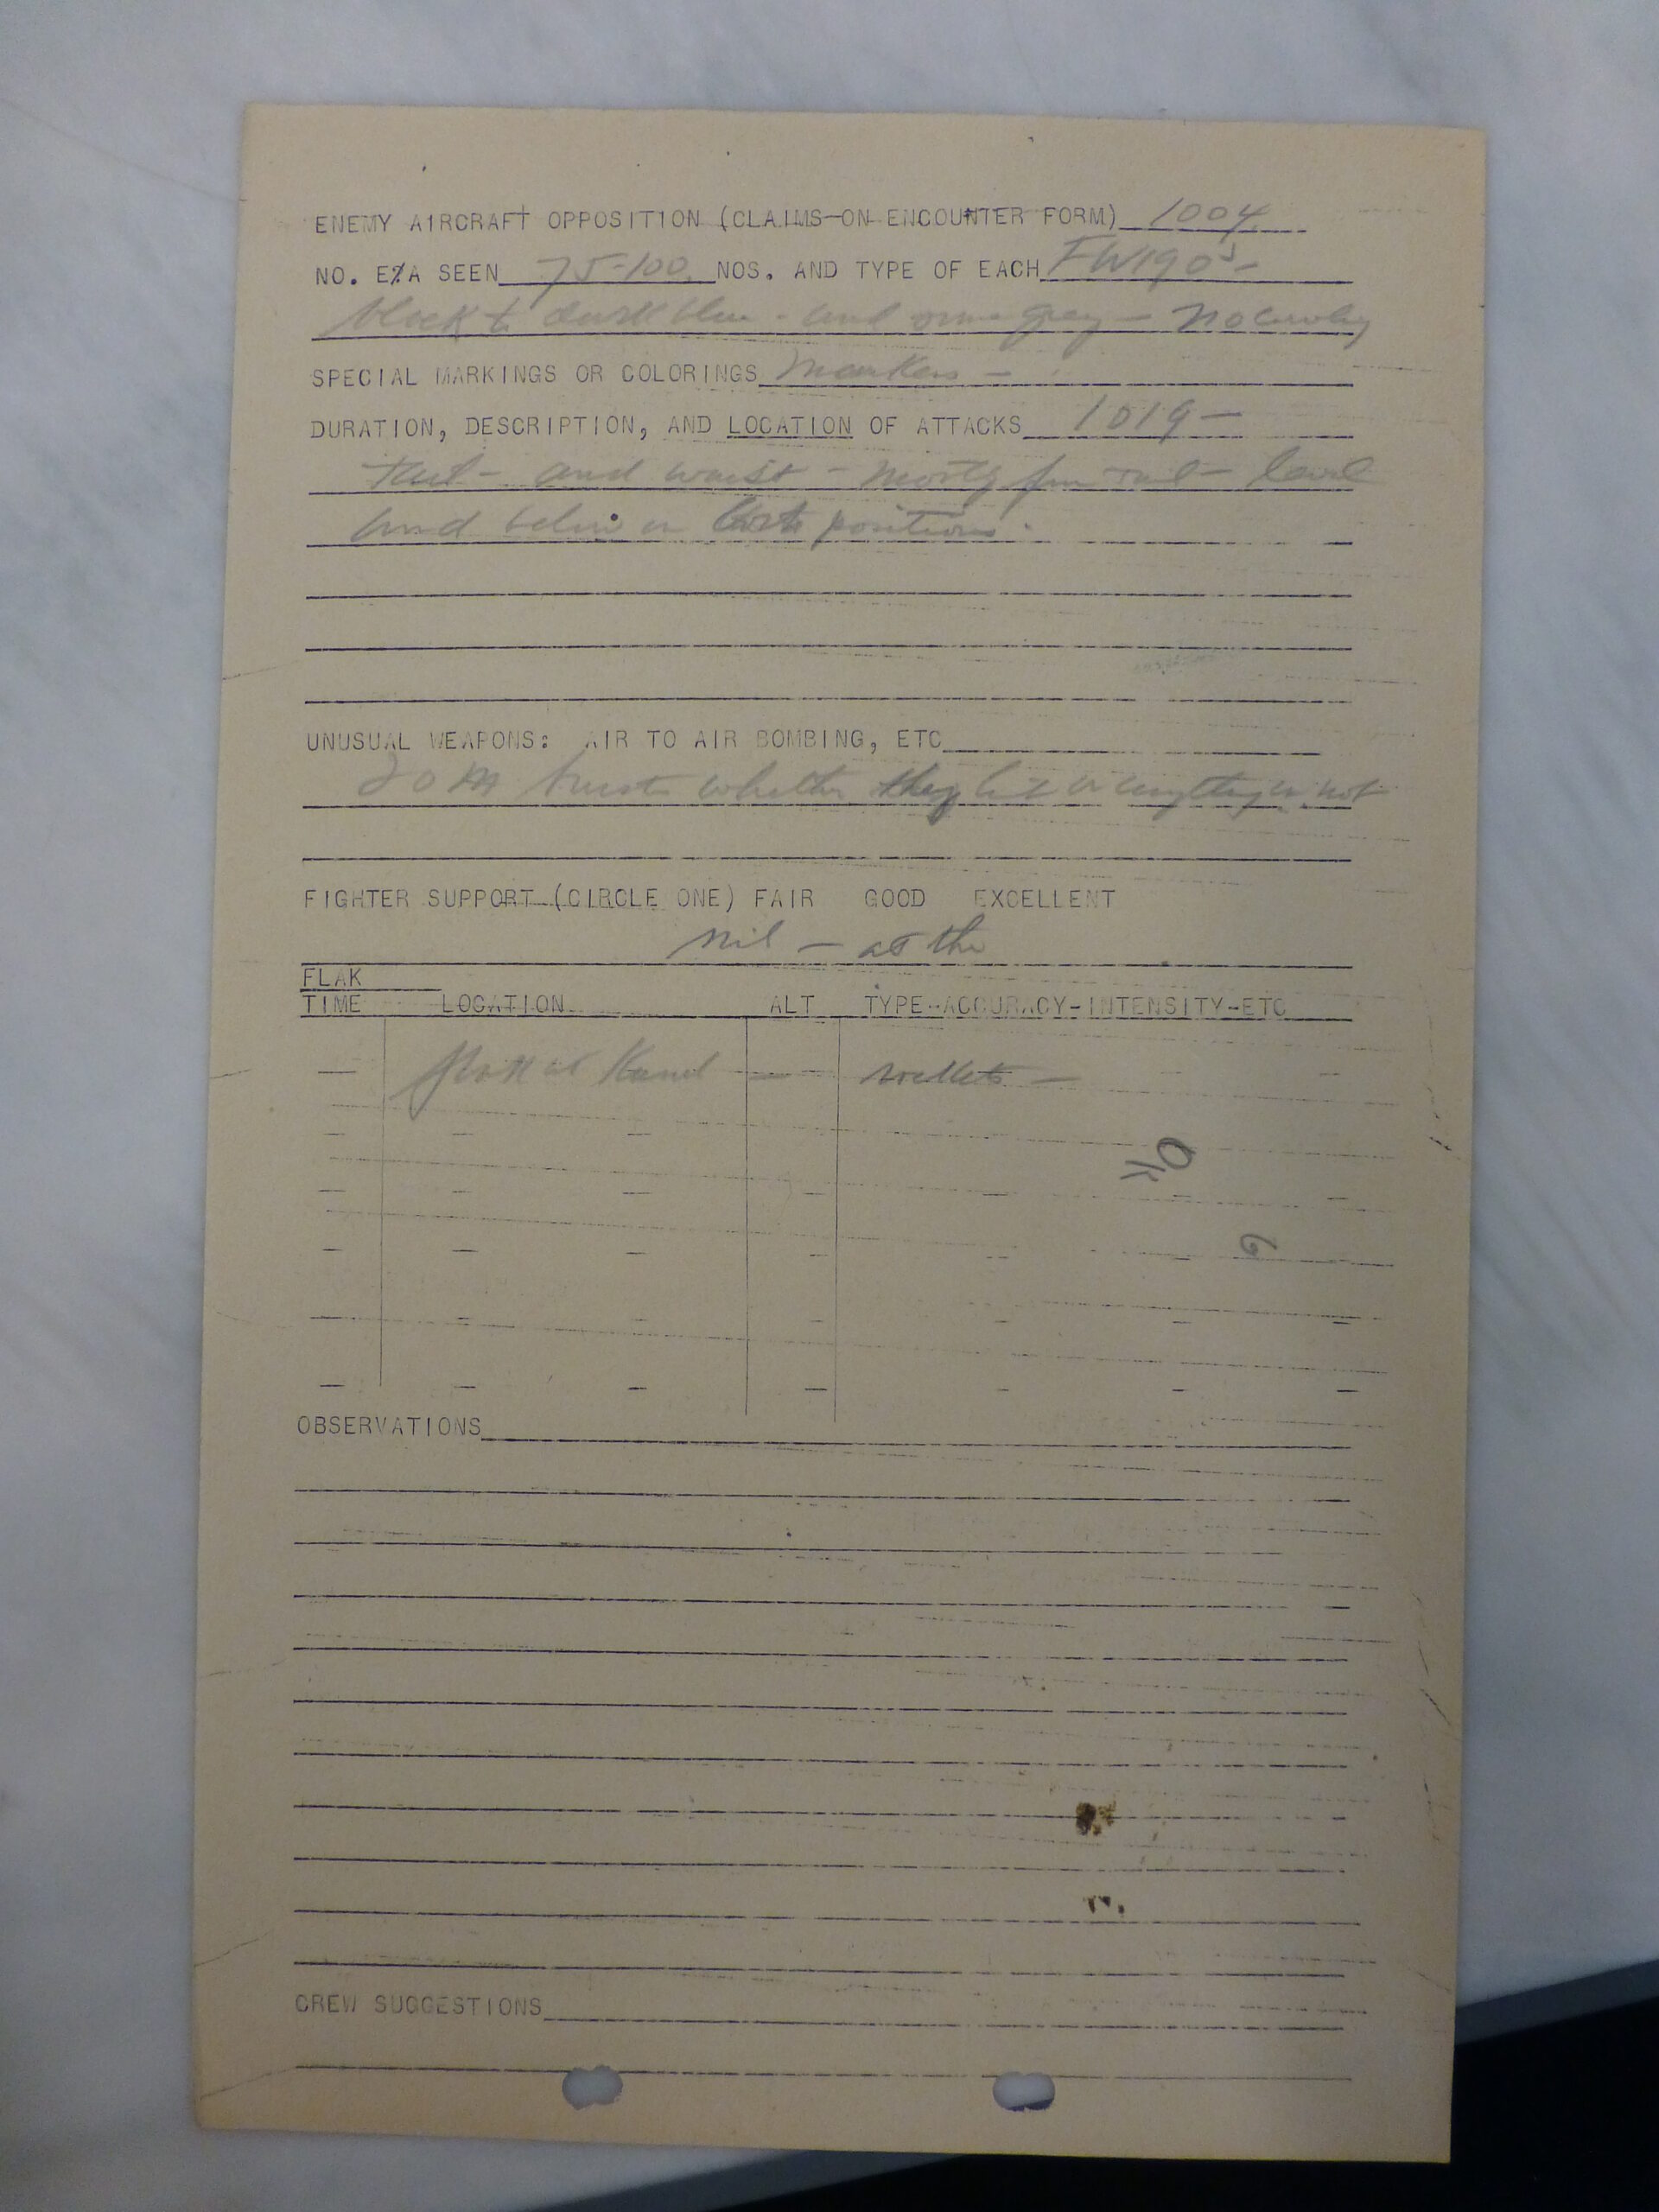 ENEMY AIRCRAFT OPPOSITION (CLAIMS-ON ENCOUNTER FORM) 1004
NO. E/A SEEN 75-100 NOS. AND TYPE OF EACH FW190s -
black to dark blue - and some grey - no cowling
SPECIAL MARKINGS OR COLORINGS markers -
DURATION, DESCRIPTION, AND LOCATION OF ATTACKS 1019 -
tail - and waist - mostly from tail - level
and below in both positions.
UNUSUAL WEAPONS: AIR TO AIR BOMBING, ETC
20 M bursts whether they hit anything or not
FIGHTER SUPPORT (CIRCLE ONE) FAIR GOOD EXCELLENT
nil - at the
FLAK
TIME LOCATION ALT TYPE-ACCURACY-INTENSITY-ETC
— — —
OK
6
OBSERVATIONS
CREW SUGGESTIONS